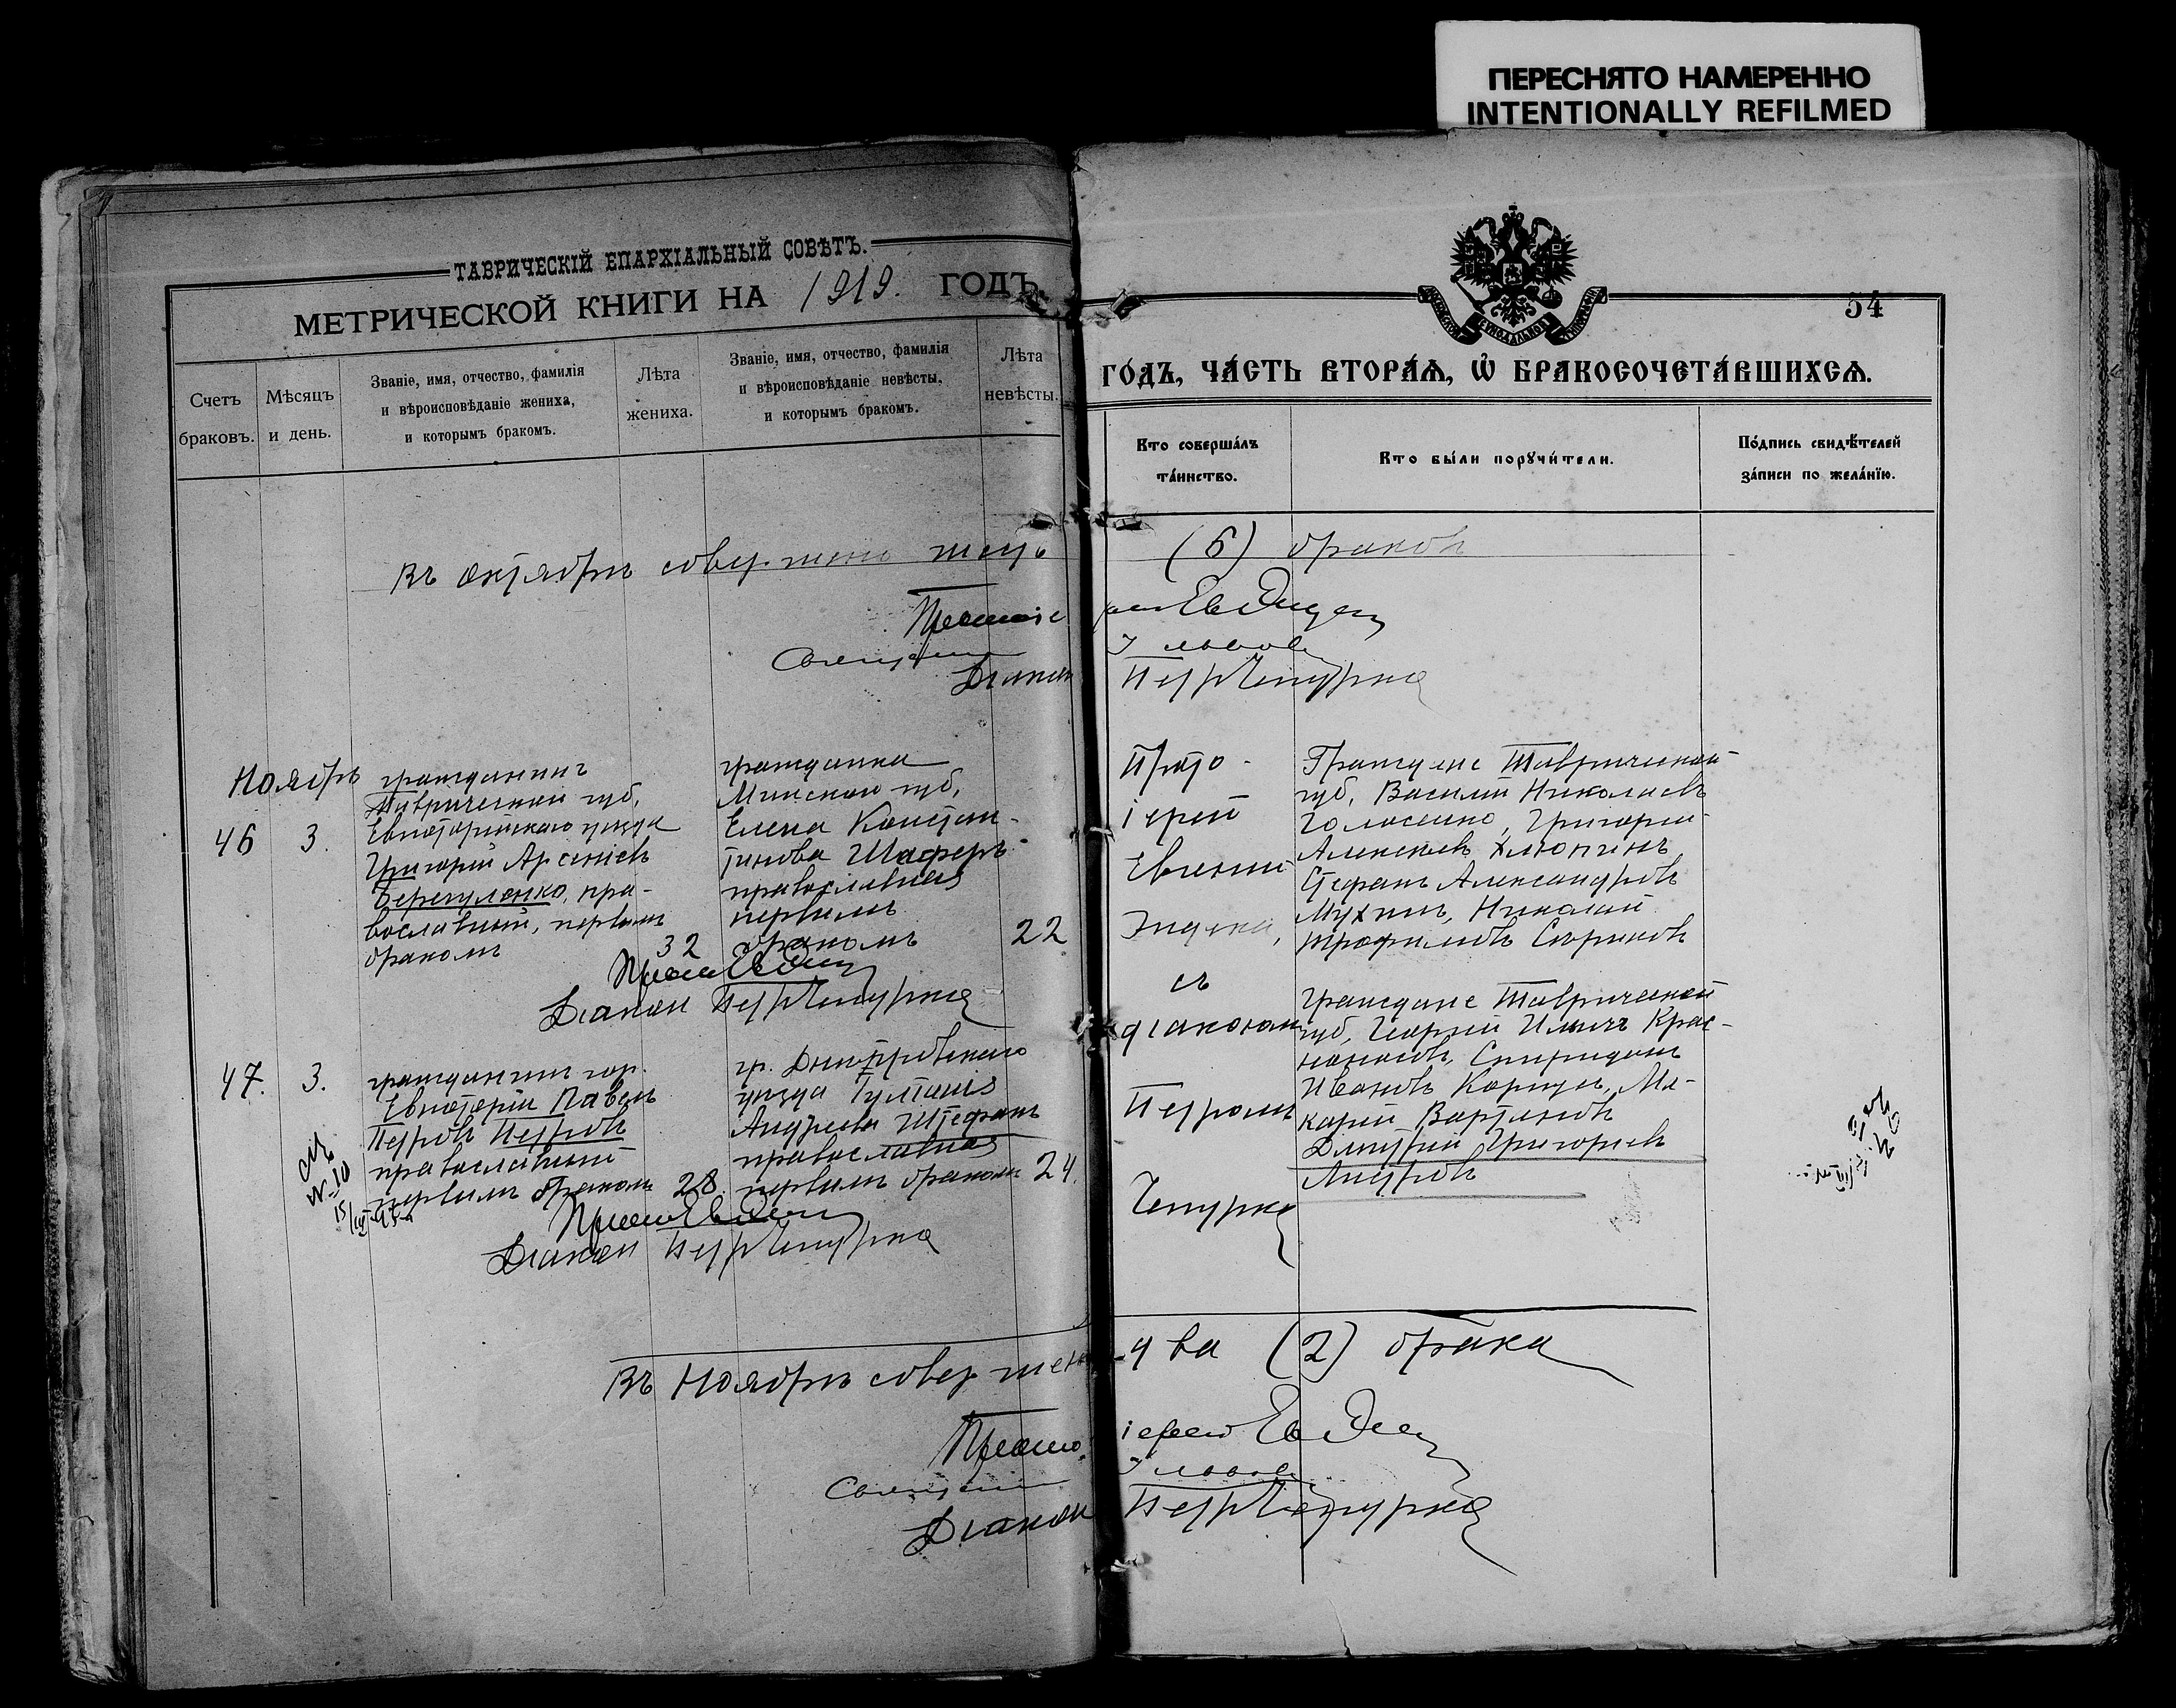 ПЕРЕСНЯТО НАМЕРЕННО
INTENTIONALLY REFILMED
ТАВРИЧЕСКІЙ ЕПАРХІАЛЬНЫЙ СОВѢТЪ.
МЕТРИЧЕСКОЙ КНИГИ НА 1919. ГОДЪ
Счетъ браковъ.
Мѣсяцъ и день.
Званіе, имя, отчество, фамилія
и вѣроисповѣданіе жениха,
и которымъ бракомъ.
Лѣта
жениха.
Званіе, имя, отчество, фамилія
и вѣроисповѣданіе невѣсты,
и которымъ бракомъ.
Лѣта
невѣсты.
54
ГО́ДЪ, ЧА́СТЬ ВТОРА́Ѧ, Ѡ҆ БРАКОСОЧЕТА́ВШИХСѦ.
Кто соверша́лъ
та́инство.
Кто бы́ли порꙋчи́тели.
По́дпись свидѣ́телей
за́писи по жела́нїю.
Въ октябрѣ совершено шесть (6) браковъ
Діакон Петр Чепурка
Ноябрь
46
3.
гражданинъ
Таврической губ,
Евпаторійскаго уѣзда
Григорій Арсеніевъ
православный, первымъ
бракомъ
32
гражданка
Минской губ,
Елена Констан-
тинова Шаферъ
православная
первымъ
бракомъ
22
Прото-
іерей
Евгеній
Эндека,
съ
діакономъ
Петромъ
Чепурка
Граждане Таврической
губ, Василій Николаевъ
Голосенко, Григорій
Алексѣевъ Хлюпинъ
Стефанъ Александровъ
Мухинъ, Николай
Трофимовъ Стриковъ
Діакон Петр Чепурка
47.
3.
гражданинъ гор.
Евпаторіи Павелъ
Петровъ Петровъ
православный
первымъ бракомъ
28.
гр. Днѣпровскаго
уѣзда
Андреева Штефанъ
православная
первымъ бракомъ
24.
Граждане Таврической
губ, Георгій Ильичъ Крас-
Спиридонъ
Ивановъ Коршунъ, Ма-
карій Вартановъ
Дмитрій Григорьевъ
№ 10
Діакон Петр Чепурка
Въ Ноябрѣ совершено два (2) брака
Діакон Петр Чепурка